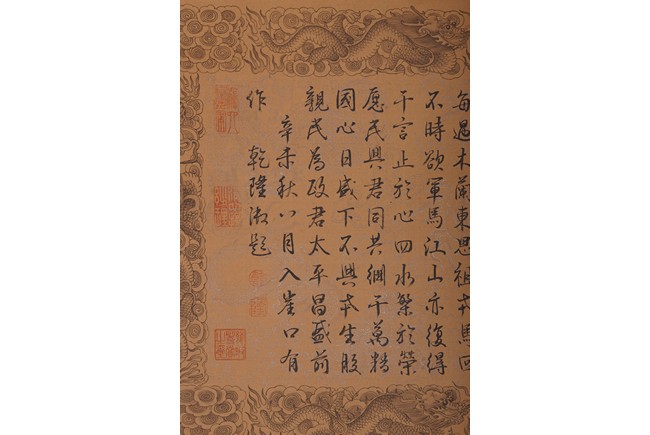 每過木蘭東思祖本馬回
不時欲軍馬江山亦復得
干言止於心四水繁於榮
愿民興君同共綱干萬
國心日盛下不興本生股
親民為政君太平昌盛前
辛未秋八月入崖口有
作 乾隆御題